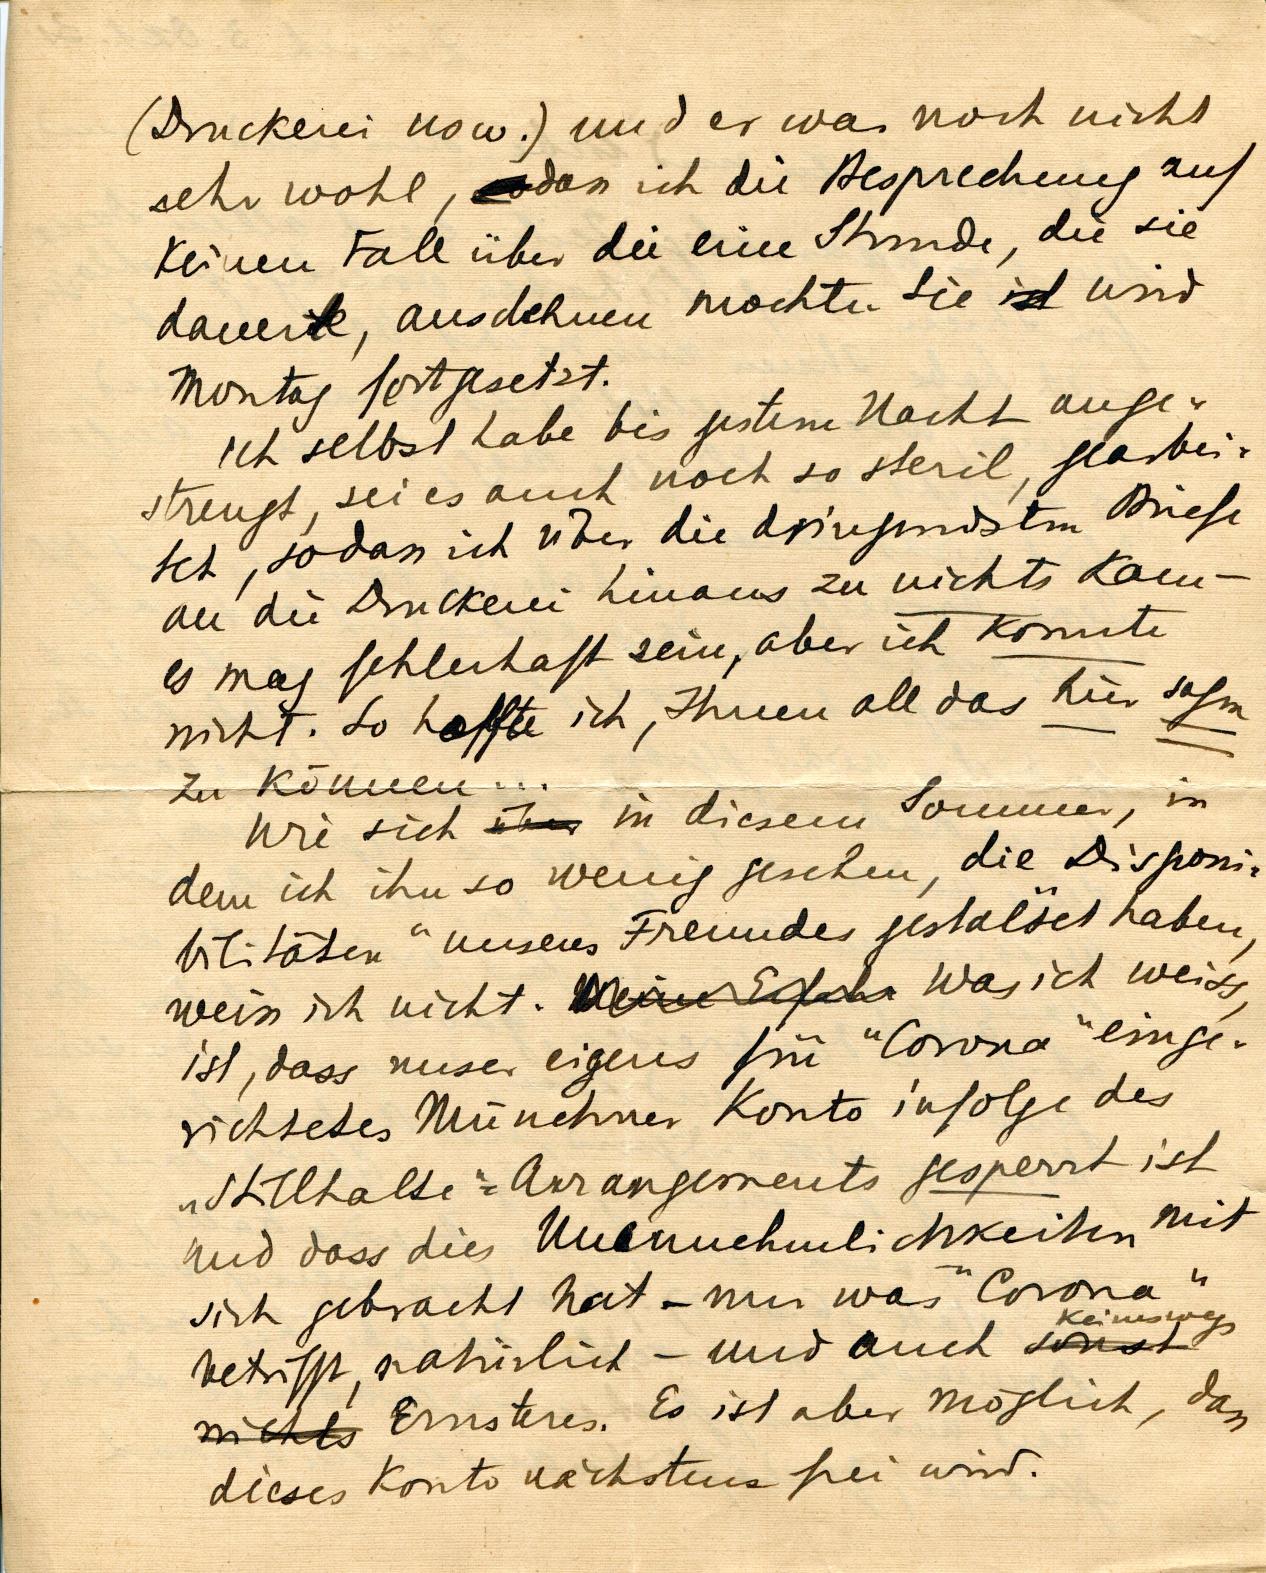 (Druckerei usw.) und er war noch nicht
sehr wohl, sodass ich die Besprechung auf
keinen Fall über die eine Stunde, die sie
dauerte, ausdehnen mochte. Sie ist wird
Montag fortgesetzt.
Ich selbst habe bis gestern Nacht ange-
strengt, sei es auch noch so steril, gearbei-
tet, sodass ich über die dringendsten Briefe
an die Druckerei hinaus zu nichts kam –
es mag fehlerhaft sein, aber ich konnte
nicht. So hoffte ich, Ihnen all das hier sagen
zu können...
Wie sich über in diesem Sommer, in
dem ich ihn so wenig gesehen, die "Disponi-
bilitäten" unseres Freundes gestaltet haben,
weiss ich nicht. Meine Erfahr Was ich weiss,
ist, dass unser eigens für "Corona" einge-
richtetes Münchner Konto infolge des
"Stillhalte"-Arrangements gesperrt ist
und dass dies Unannehmlichkeiten mit
sich gebracht hat – nur was "Corona"
betrifft, natürlich – und auch sonst keineswegs
nichts Ernsteres. Es ist aber möglich, dass
dieses Konto nächstens frei wird.